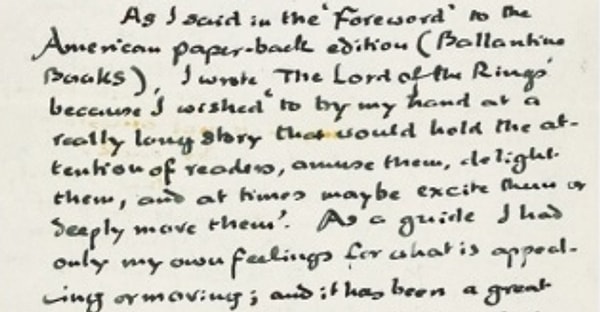 As I said in the 'Foreword' to the
American paper-back edition (Ballantine
Books), I wrote 'The Lord of the Rings'
because I wished 'to try my hand at a
really long story that would hold the at-
tention of readers, amuse them, delight
them, and at times maybe excite them or
deeply move them'. As a guide I had
only my own feelings for what is appeal-
ing or moving; and it has been a great